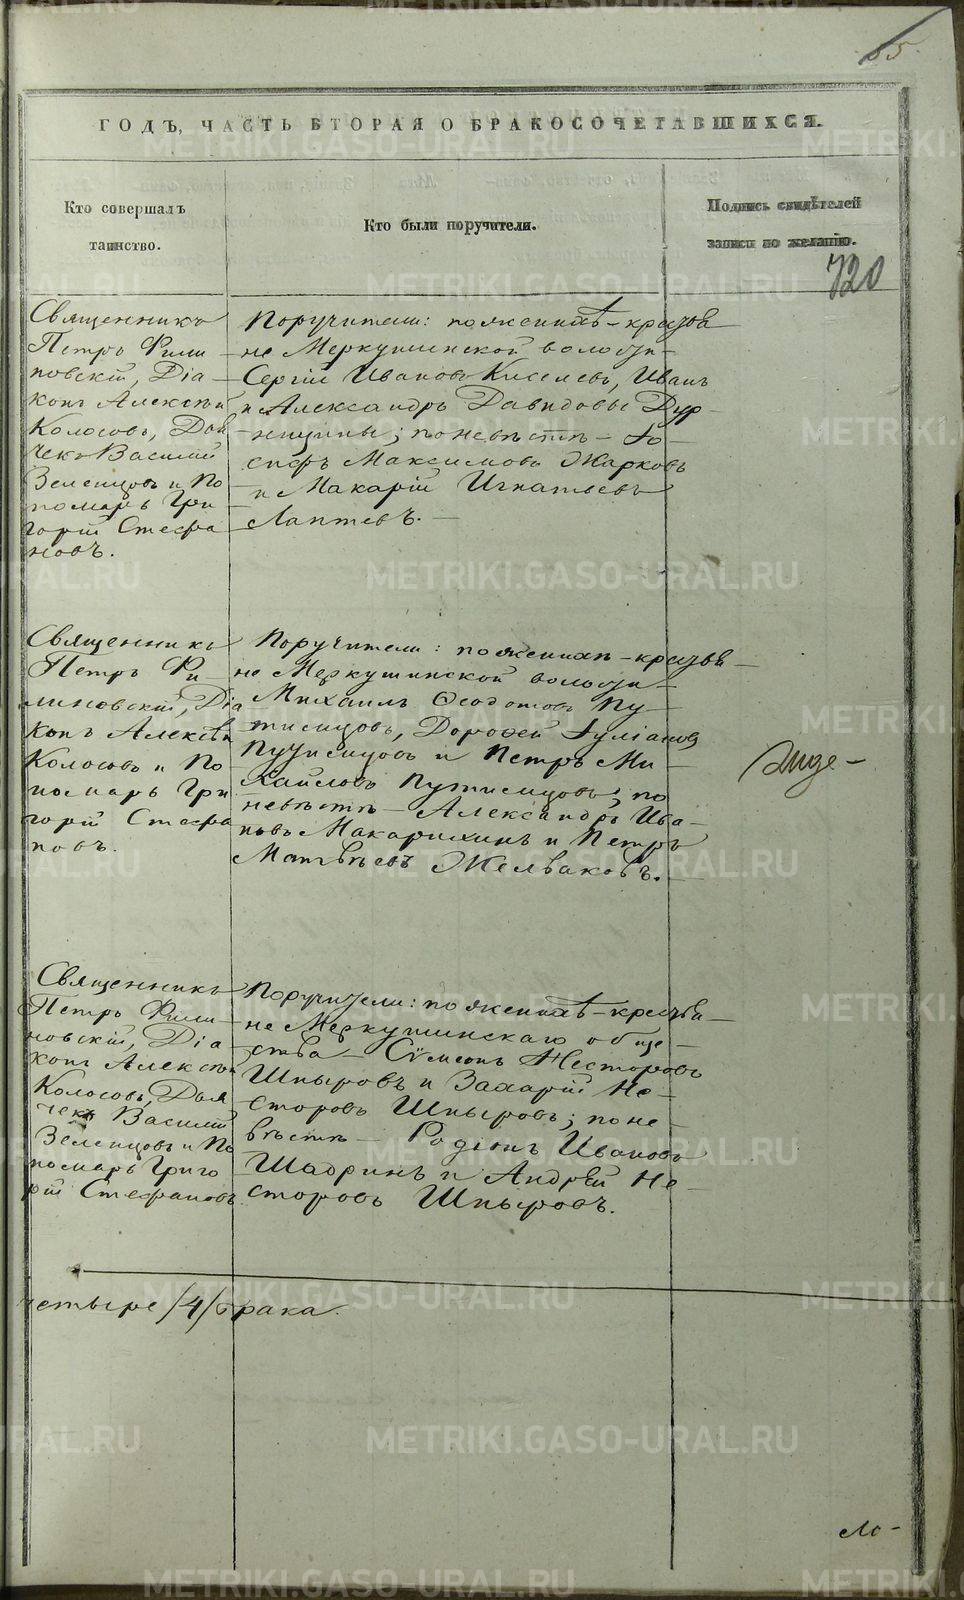 65
ГОДЪ, ЧАСТЬ ВТОРАЯ О БРАКОСОЧЕТАВШИХСЯ.
Кто совершалъ
таинство.
Кто были поручители.
Подпись свидѣтелей
записи по желанію.
720
Священникъ
Петръ Фили
повскій, Діа
конъ Алексѣй
Колосовъ, Дья
чекъ Василій
Зеленцовъ и По
номарь Гри
горій Стефа
новъ.
Поручители: по женихѣ – крестья
не Меркушинской волости –
Сергій Ивановъ Киселевъ, Иванъ
и Александръ Давидовы Дур
ницыны; по невѣстѣ – Іо
сифъ Максимовъ Жарковъ
и Макарій Игнатьевъ
Лаптевъ. –
Священникъ
Петръ Фи
линовскій, Діа
конъ Алексѣй
Колосовъ и По
номарь Гри
горій Стефа
новъ.
Поручители: по женихѣ – крестья
не Меркушинской волости –
Михаилъ Ѳедотовъ Пу
тимцовъ, Дороѳей Іуліановъ
Путимцовъ и Петръ Ми
хайловъ Путимцовъ; по
невѣстѣ – Александръ Ива
новъ Макарихинъ и Петръ
Матвѣевъ Желваковъ. –
Священникъ
Петръ Фили
новскій, Діа
конъ Алексѣй
Колосовъ, Дья
чекъ Василій
Зеленцовъ и По
номарь Григо
рій Стефановъ
Поручители: по женихѣ – крестья
не Меркушинскаго обще
ства – Сімеонъ Несторовъ
Шныровъ и Захарій Не
сторовъ Шныровъ; по не
вѣстѣ – Родіонъ Ивановъ
Шадринъ и Андрей Не
сторовъ Шныровъ.
четыре /4/ брака.
METRIKI.GASO-URAL.RU